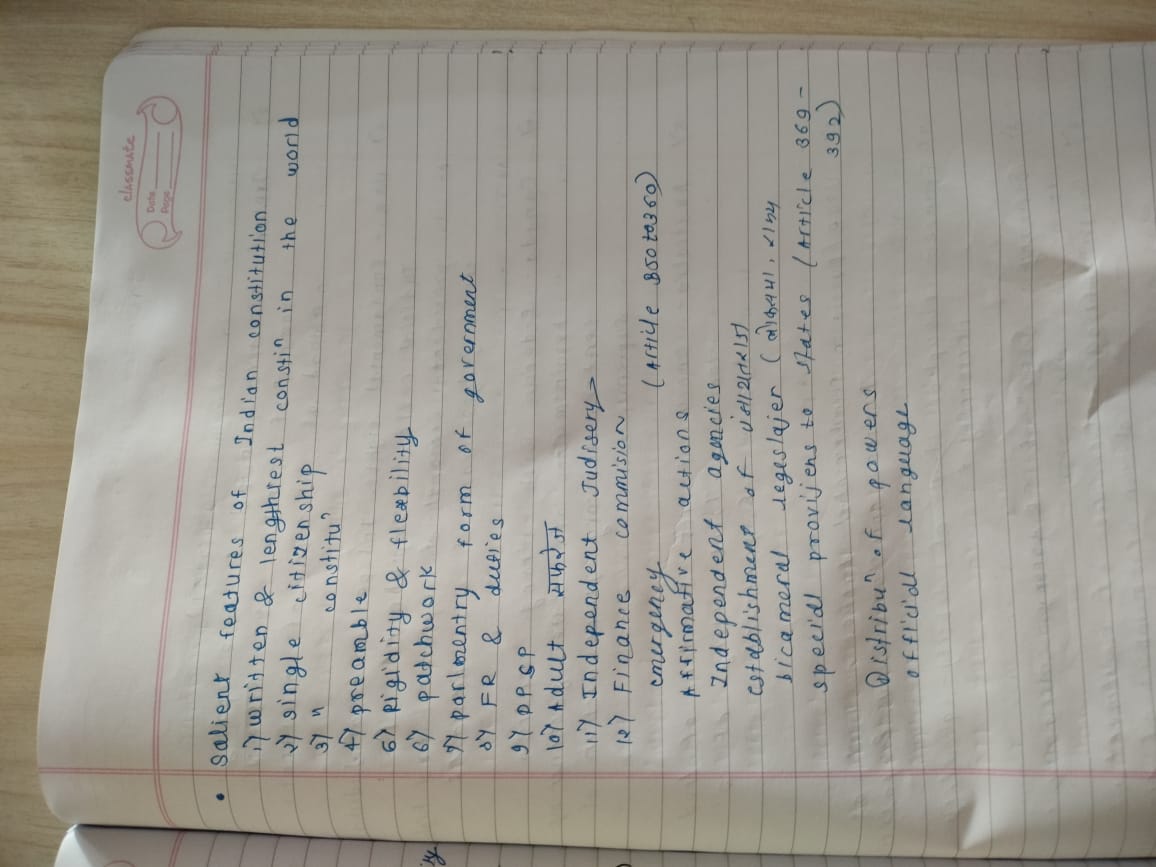 classmate
Date
Page
• Salient features of Indian constitution
1) written & lengthiest constiⁿ in the world
2) single citizenship
3) " constituⁿ
4) preamble
5) Rigidity & flexbility
6) patchwork
7) parlmentry form of government
8) FR & duties
9) DPSP
10) Adult
11) Independent Judisery
12) Finance commision
emergency (Article 350 to 360)
Affirmative actions
Independent agencies
establishment of
bicameral legeslajer (
special provijens to states (Article 369-
392)
Distribuⁿ of powers
official language